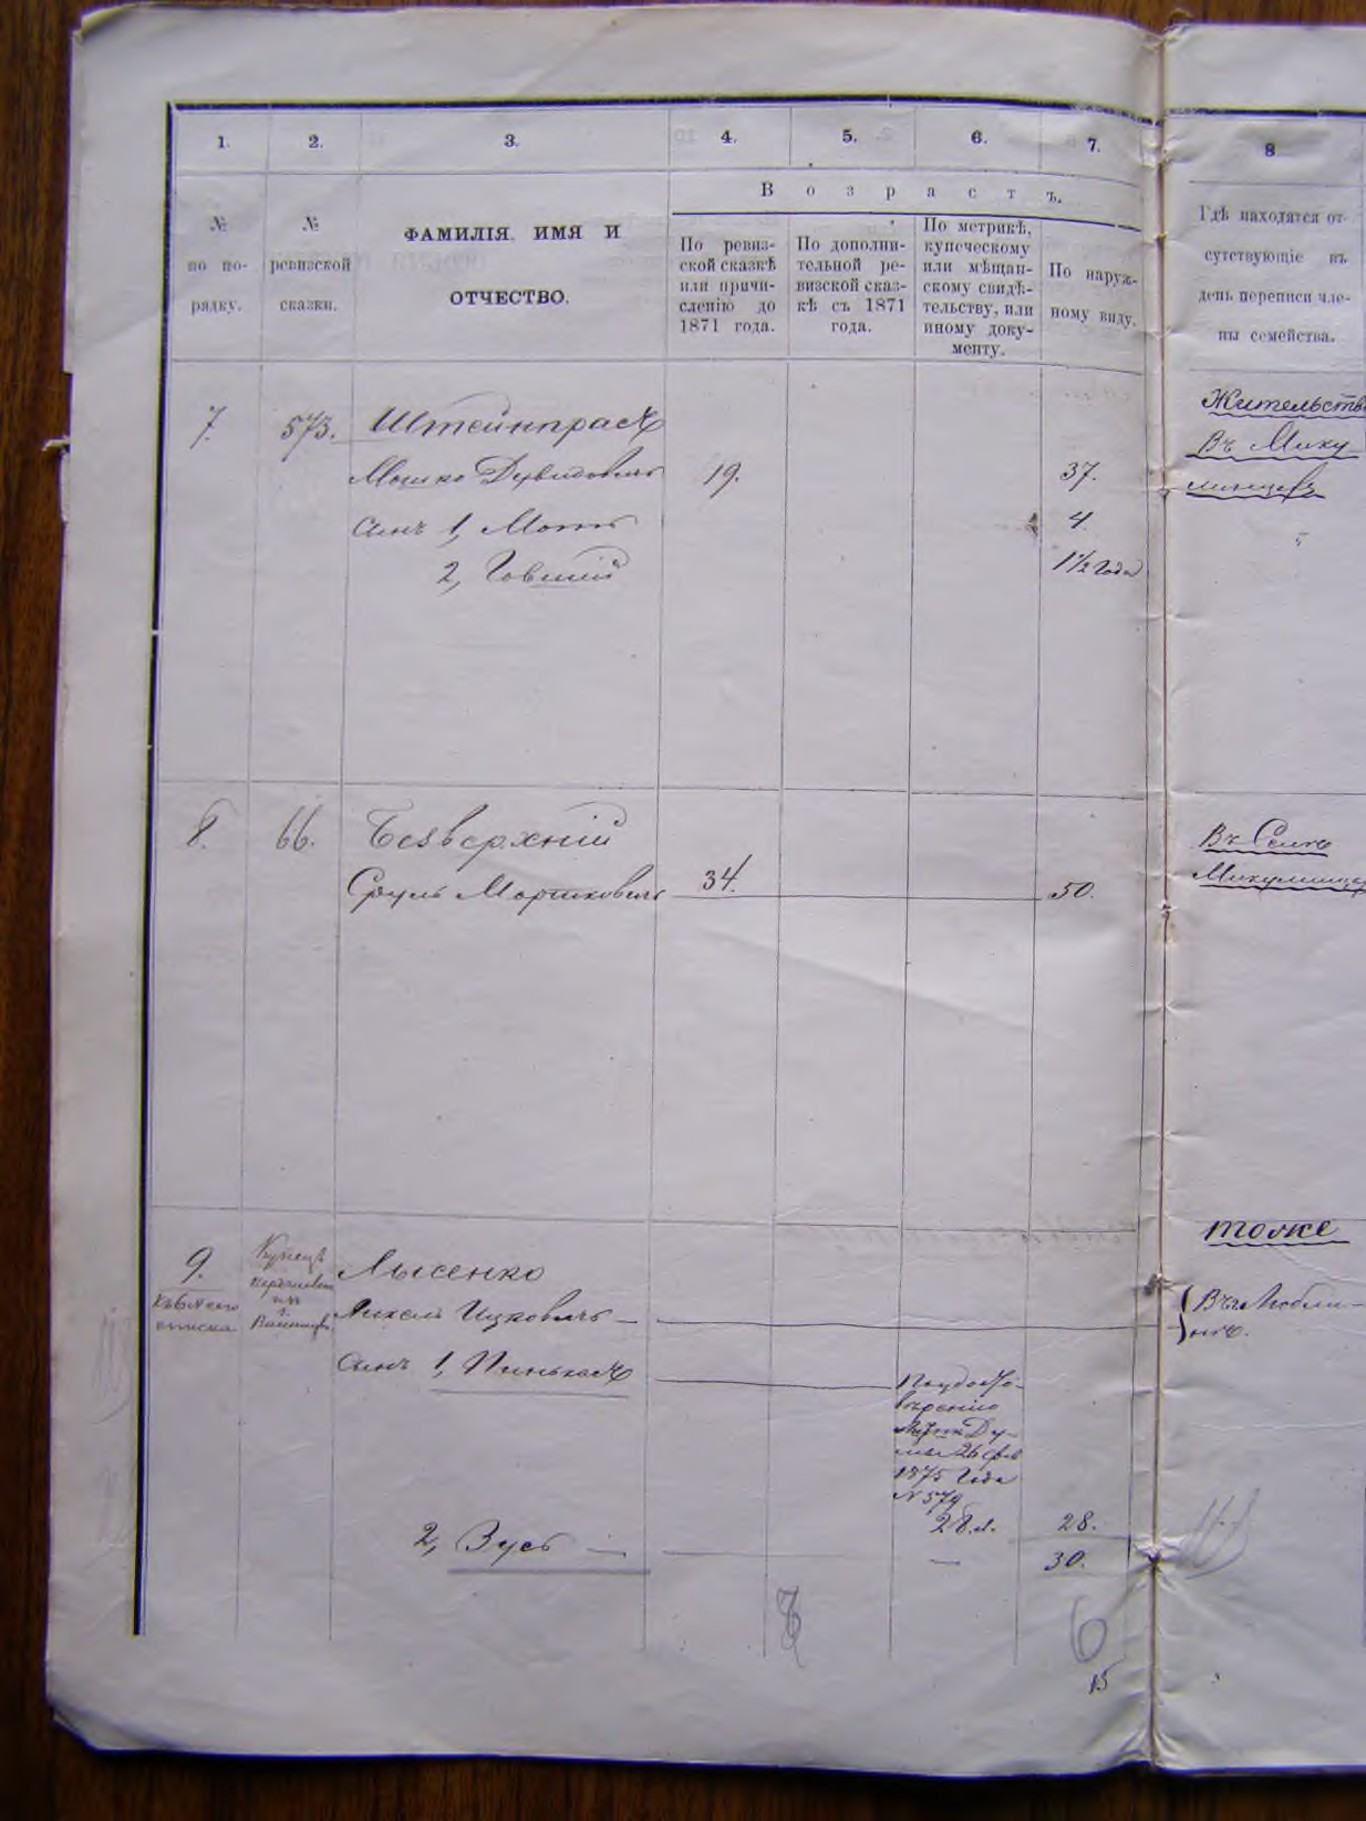 1. 2. 3. 4. 5. 6. 7. 8
Возрастъ.
№ по по-
рядку.
№
ревизской
сказки.
ФАМИЛІЯ, ИМЯ И
ОТЧЕСТВО.
По ревиз-
ской сказкѣ
или причи-
сленію до
1871 года.
По дополни-
тельной ре-
визской сказ-
кѣ съ 1871
года.
По метрикѣ,
купеческому
или мѣщан-
скому свидѣ-
тельству, или
иному доку-
менту.
По наруж-
ному виду.
Гдѣ находятся от-
сутствующіе въ
день переписи чле-
ны семейства.
7. 573. Штейнпрасъ
Мошко Дувидовичъ 19. 37.
сынъ 1, Мотъ 4.
2, Говшій 1½ года
Жительств
Въ Мику
линцахъ
8. 66. Безверхній
Сруль Моршковичъ 34. 50.
Въ Селѣ
Микулинца
9. Лысенко
Купецъ
Ихель Ицковичъ —
сынъ 1, Пинькасъ
По удосто-
вѣренію
Ду-
мы 26 фев
1875 года
№ 579
28.л. 28.
2, Зусь — — 30.
тоже
6
15